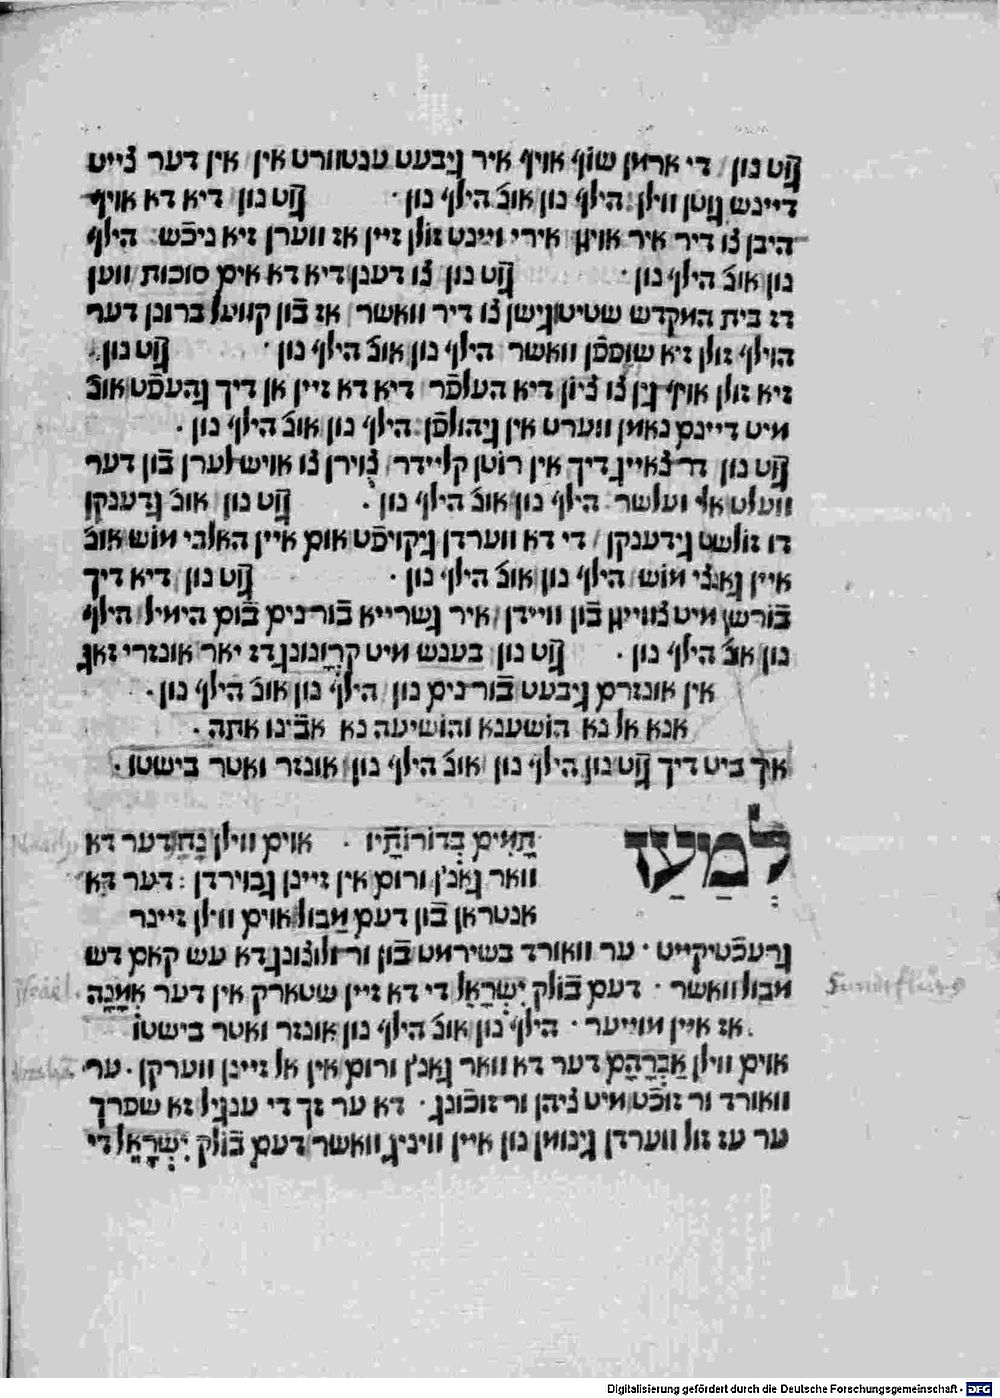 גֿוט נון די ארמן שוף אויף איר גיבעט ענטוורט אין אין דער צייט
דיינש גוטן ווילן הילף נון אוב הילף נון · גוט נון דיא דא אויף
היבן צו דיר איר אויגן אירי ויינט זולן זיין אז ווערן זיא ניכֿש הילף
נון אוב הילף נון · גוט נון צו דענן דיא דא אים סוכות ווען
דז בית המקדש שטיט וגישן צו דיר וואשר אז בֿון קוועל ברונן דער
הוילף זולן זיא שופפֿן וואשר הילף נון אוב הילף נון · גוט נון
זיא זולן אויף גין צו ציון דיא העלפֿר דיא דא זיין אן דיך גהעפֿט אוב
מיט דיינם נאמן ווערט אין גיהולפֿן הילף נון אוב הילף נון ·
גוט נון דר צאייג דיך אין רוטן קליידר צוירן צו אויש לערן בֿון דער
וועלט אלי ועלשר הילף נון אוב הילף נון · גוט נון אוב גדענקן
דו זולשט גידענקן די דא ווערדן גיקויפֿט אום איין האלבי מוש אוב
איין גאנצי מוש הילף נון אוב הילף נון · גוט נון דיא דיך
בֿורשן מיט צווייגן בֿון וויידן איר גשרייא בֿור נים בֿום הימיל הילף
נון אוב הילף נון · גוט נון בענש מיט קרונונג דז יאר אונזרי זאג
אין אונזרם גיבעט בֿור נים נון הילף נון אוב הילף נון ·
אנא אל נא הושענא והושיעה נא אבֿינו אתה ·
איך ביט דיך גוט נון הילף נון אוב הילף נון אונזר ואטר בישטו ·
לְמַעַן
תָּמִים בְּדוֹרוֹתָיו · אוים ווילן נֹחַ דער דא
וואר גאנץ ורום אין זיינן גבוירדן : דער דא
אנטראן בֿון דעם מַבול אוים ווילן זיינר
גרעכֿטיקייט · ער וואורד בשירמט בֿון ור דולצונג דא עש קאם דש
מבול וואשר · דעם בֿולק יִשְׂרָאֵל די דא זיין שטארק אין דער אֱמֻנָה
אז איין מוייער · הילף נון אוב הילף נון אונזר ואטר בישטו
אוים ווילן אַבְרָהָם דער דא וואר גאנץ ורום אין אל זיינן ווערקן · ער
וואורד ור זוכֿט מיט ציהן ור זוכֿונג · דא ער זך די ענגיל זא שפרך
ער עז זול ווערדן גינומן נון איין וויניג וואשר דעם בֿולק יִשְׂרָאֵל די
Israel.
Digitalisierung gefördert durch die Deutsche Forschungsgemeinschaft - DFG